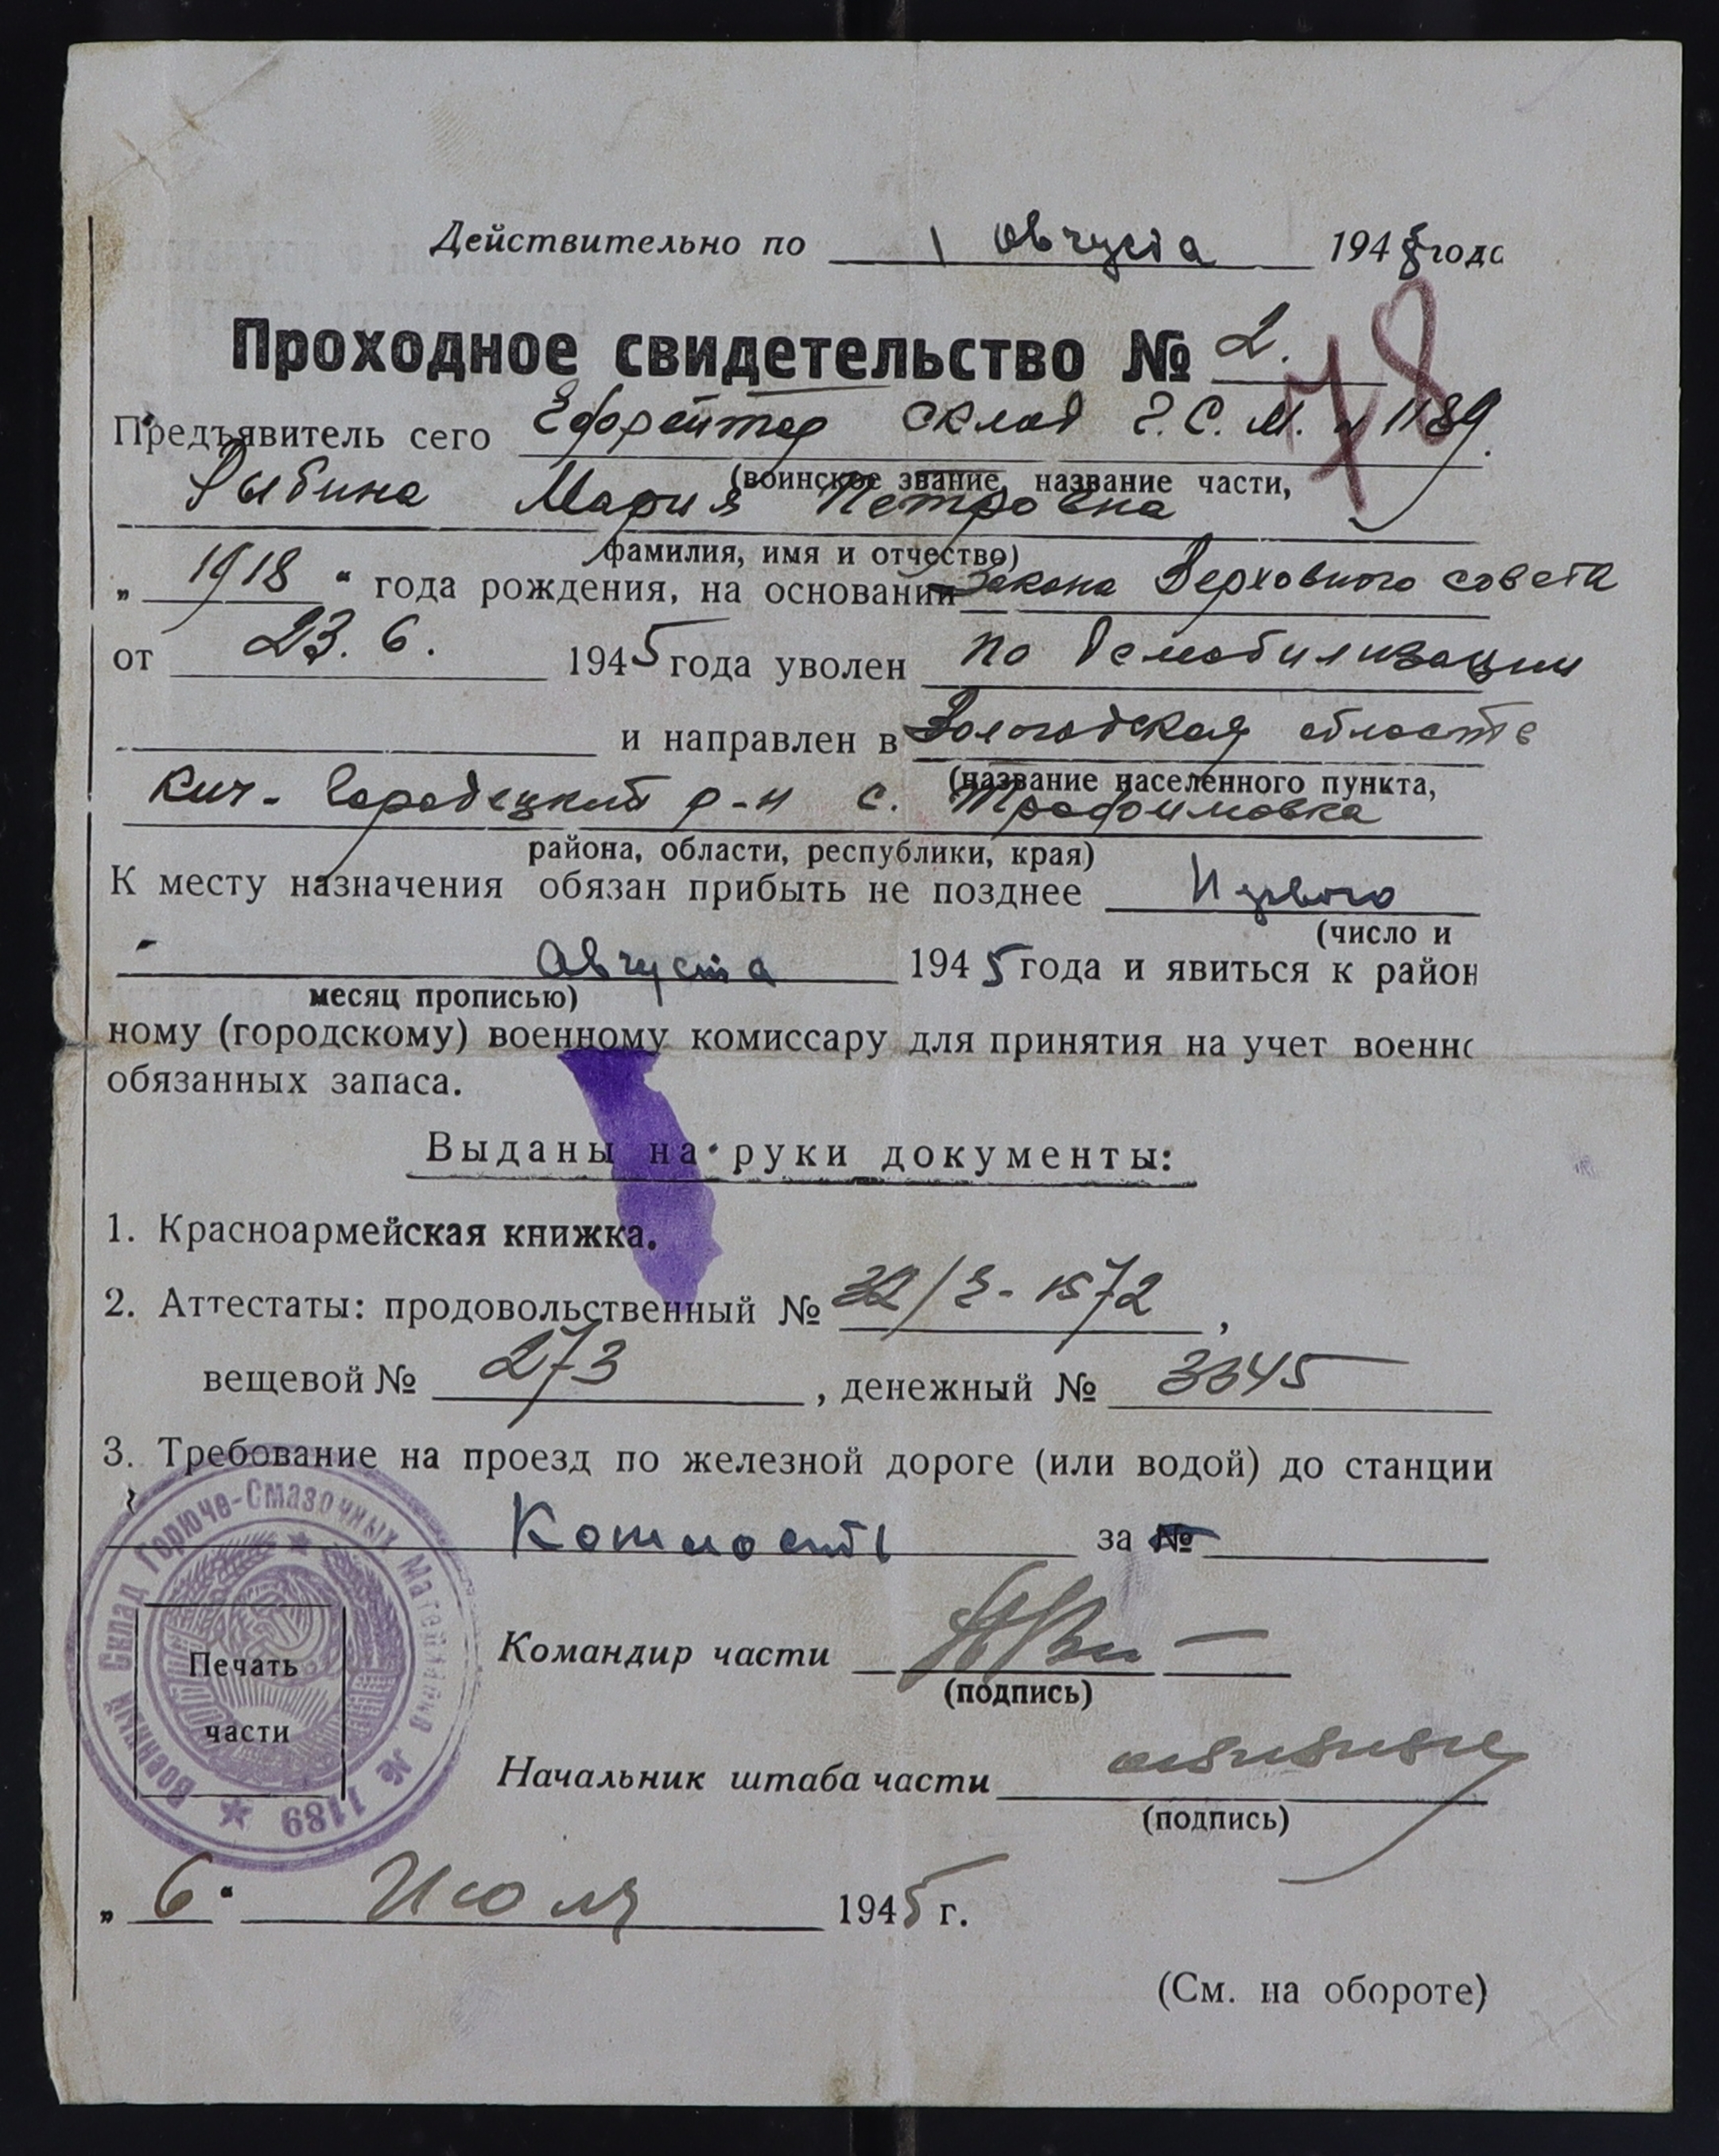 Действительно по 1 августа 1945 года
Проходное свидетельство № 2.
78
Предъявитель сего Ефрейтор склад Г.С.М. № 1189.
(воинское звание, название части,
Рыбина Мария Петровна
фамилия, имя и отчество)
„ 1918 “ года рождения, на основании закона Верховного совета
от 23.6. 1945 года уволен по демобилизации
и направлен в Вологодская область
(название населенного пункта,
Кич-Городецкий р-н с. Трофимовка
района, области, республики, края)
К месту назначения обязан прибыть не позднее Первого
(число и
августа 1945 года и явиться к район
месяц прописью)
ному (городскому) военному комиссару для принятия на учет военно
обязанных запаса.
Выданы на руки документы:
1. Красноармейская книжка.
2. Аттестаты: продовольственный № 32/3-1572,
вещевой № 273, денежный № 3345
3. Требование на проезд по железной дороге (или водой) до станции
за №
Военный Склад Горюче-Смазочных Материалов № 1189
Печать
части
Командир части
(подпись)
Начальник штаба части
(подпись)
„ 6 “ Июля 1945 г.
(См. на обороте)